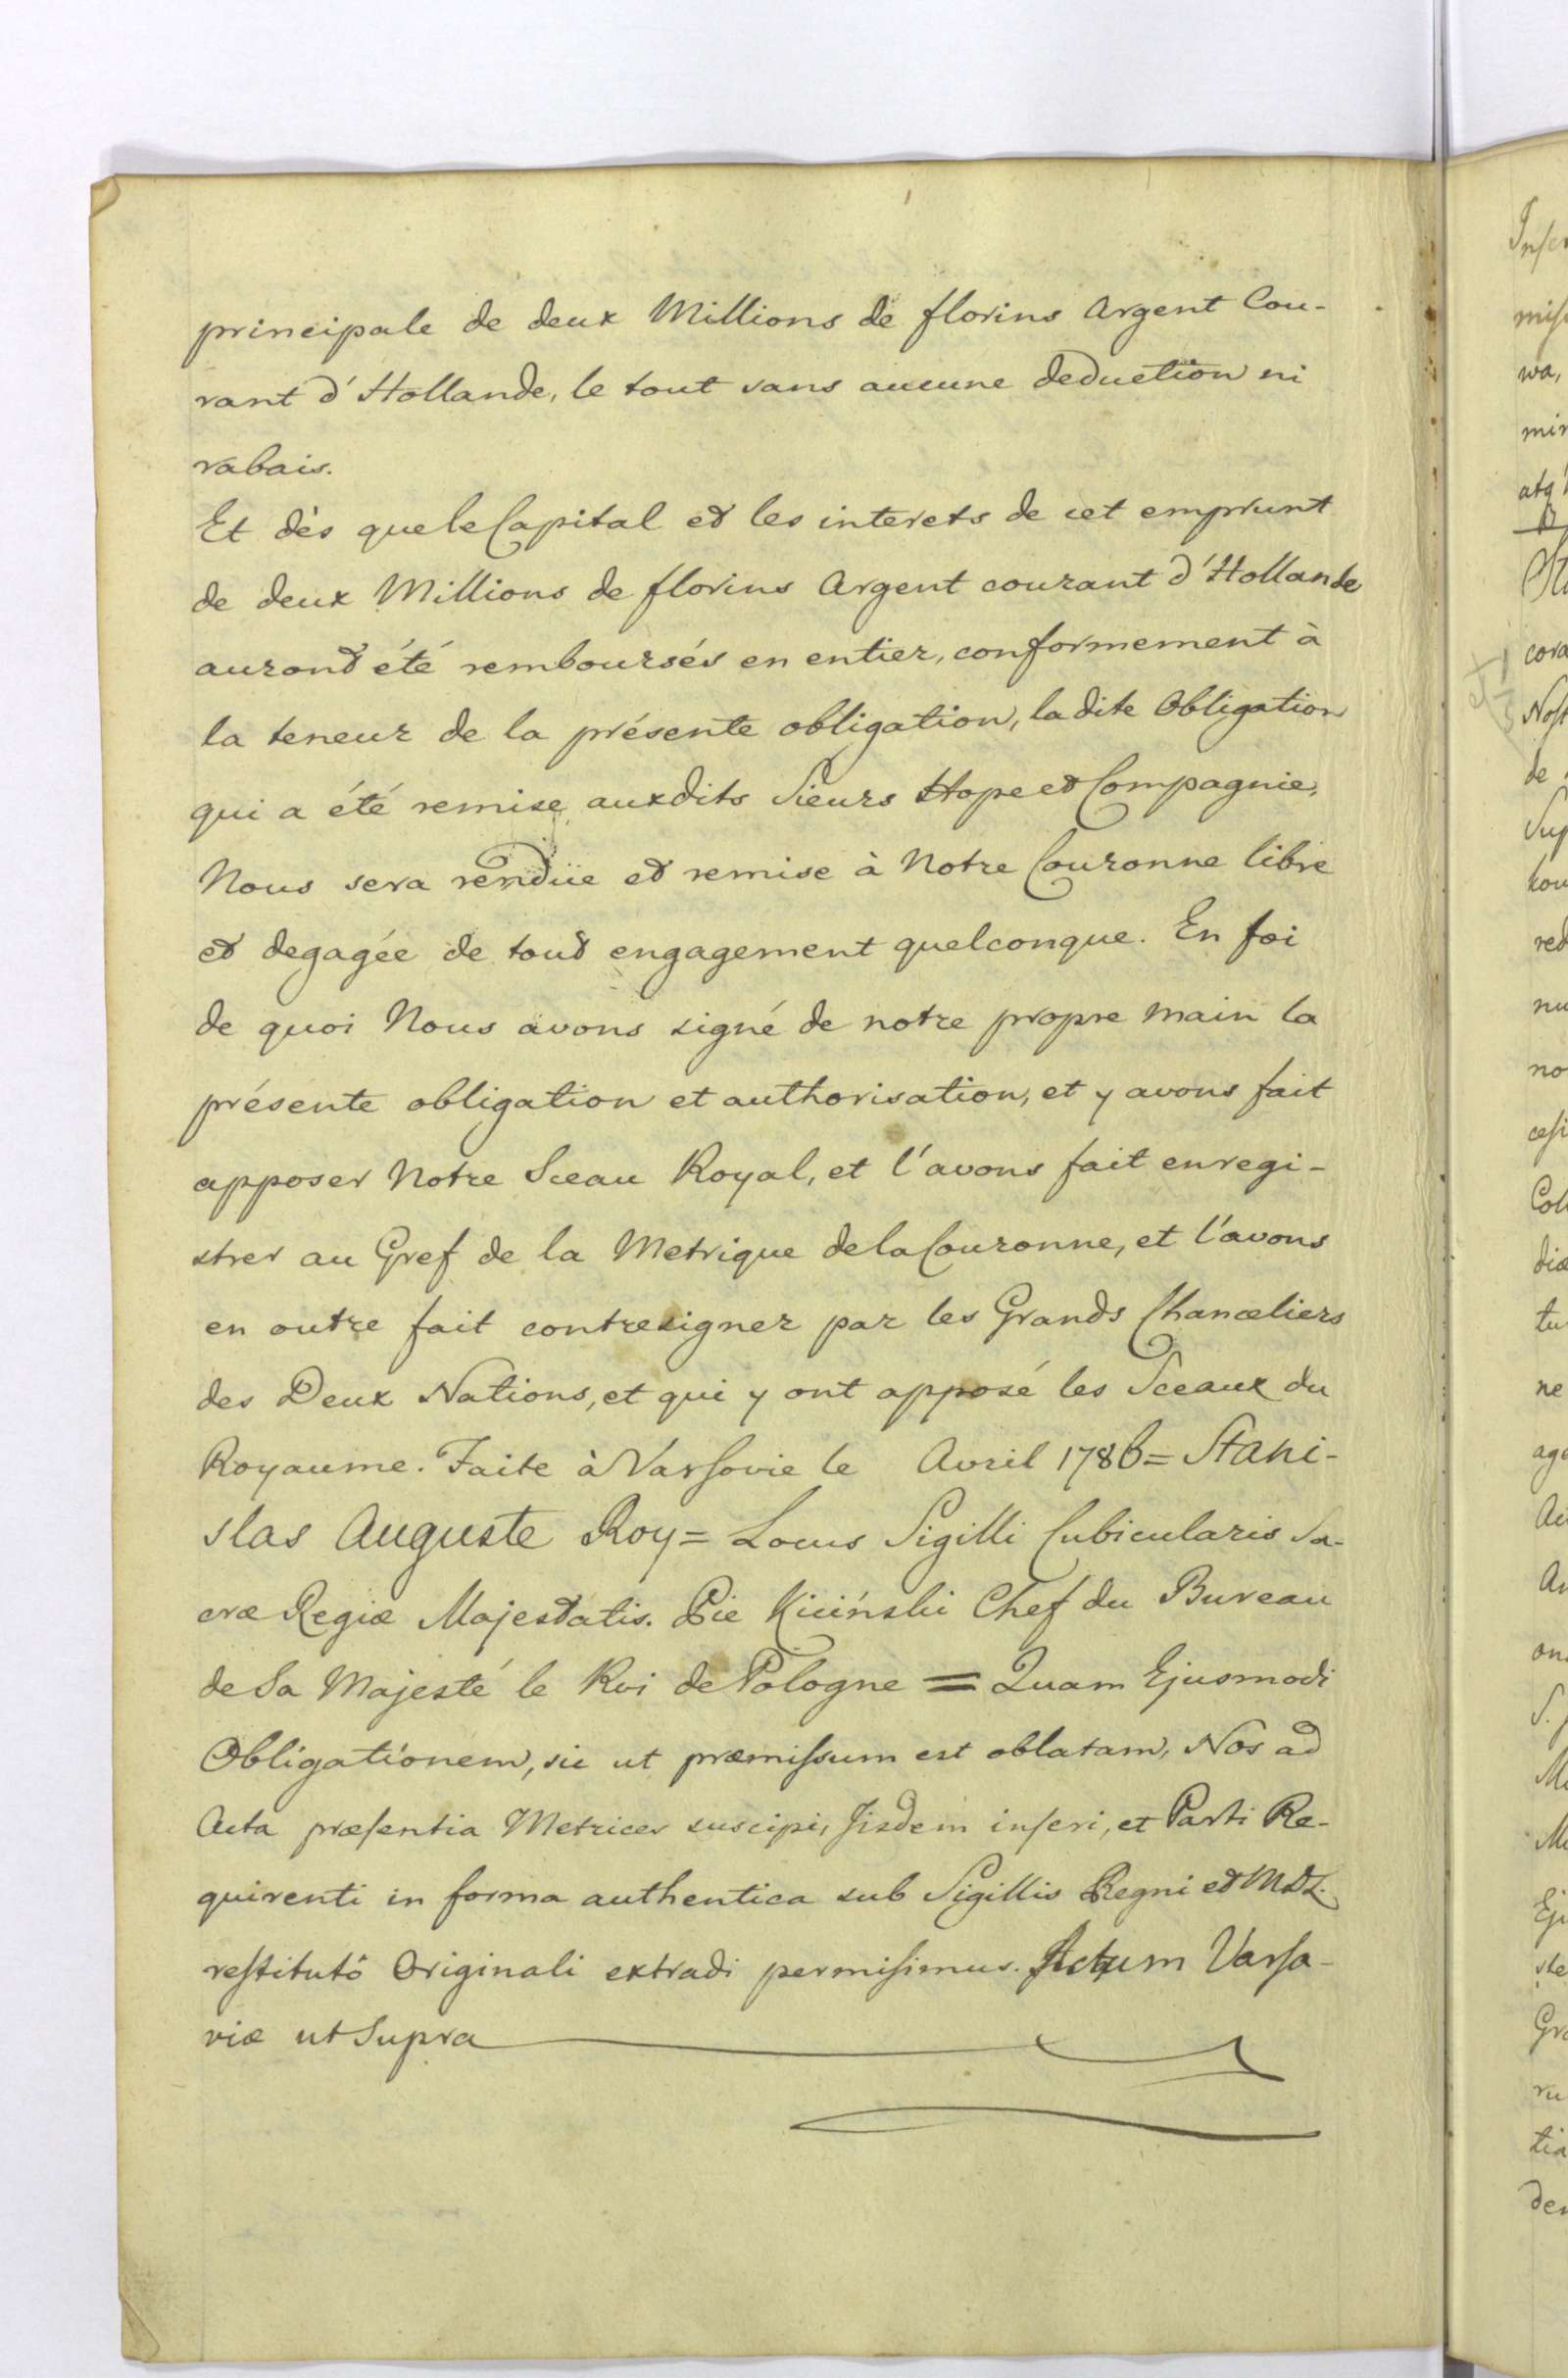 principale de deux Millions de florins Argent Cou-
rant d'Hollande, le tout sans aucune deduction ni
rabais.
Et dès que le Capital et les interets de cet emprunt
de deux Millions de florins Argent courant d'Hollande
auront été remboursés en entier, conformement à
la teneur de la présente obligation, la dite Obligation
qui a été remise auxdits Sieurs Hope et Compagnie,
Nous sera rendüe et remise à Notre Couronne libre
et degagée de tout engagement quelconque. En foi
de quoi Nous avons signé de notre propre main la
présente obligation et authorisation, et y avons fait
apposer Notre Sceau Royal, et l'avons fait enregi-
strer au Gref de la Metrique de la Couronne, et l'avons
en outre fait contresigner par les Grands Chanceliers
des Deux Nations, et qui y ont apposé les Sceaux du
Royaume. Faite à Varsovie le Avril 1786 = Stani-
slas Auguste Roy = Locus Sigilli Cubicularis Sa-
cræ Regiæ Majestatis. Pie Kiciński Chef du Bureau
de Sa Majesté le Roi de Pologne = Quam Ejusmodi
Obligationem, sic ut præmissum est oblatam, Nos ad
Acta præsentia Metrices suscipi, Jisdem inseri, et Parti Re-
quirenti in forma authentica sub Sigillis Regni et MDL.
restitutô Originali extradi permisimus. Actum Varsa-
viæ ut Supra